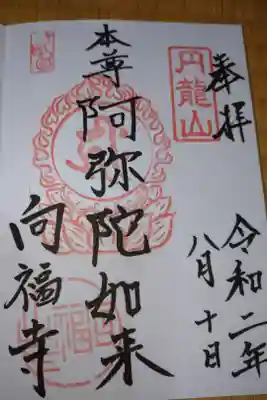 奉拝
円龍山
令和二年
八月十日
本尊
阿弥陀如来
向福寺